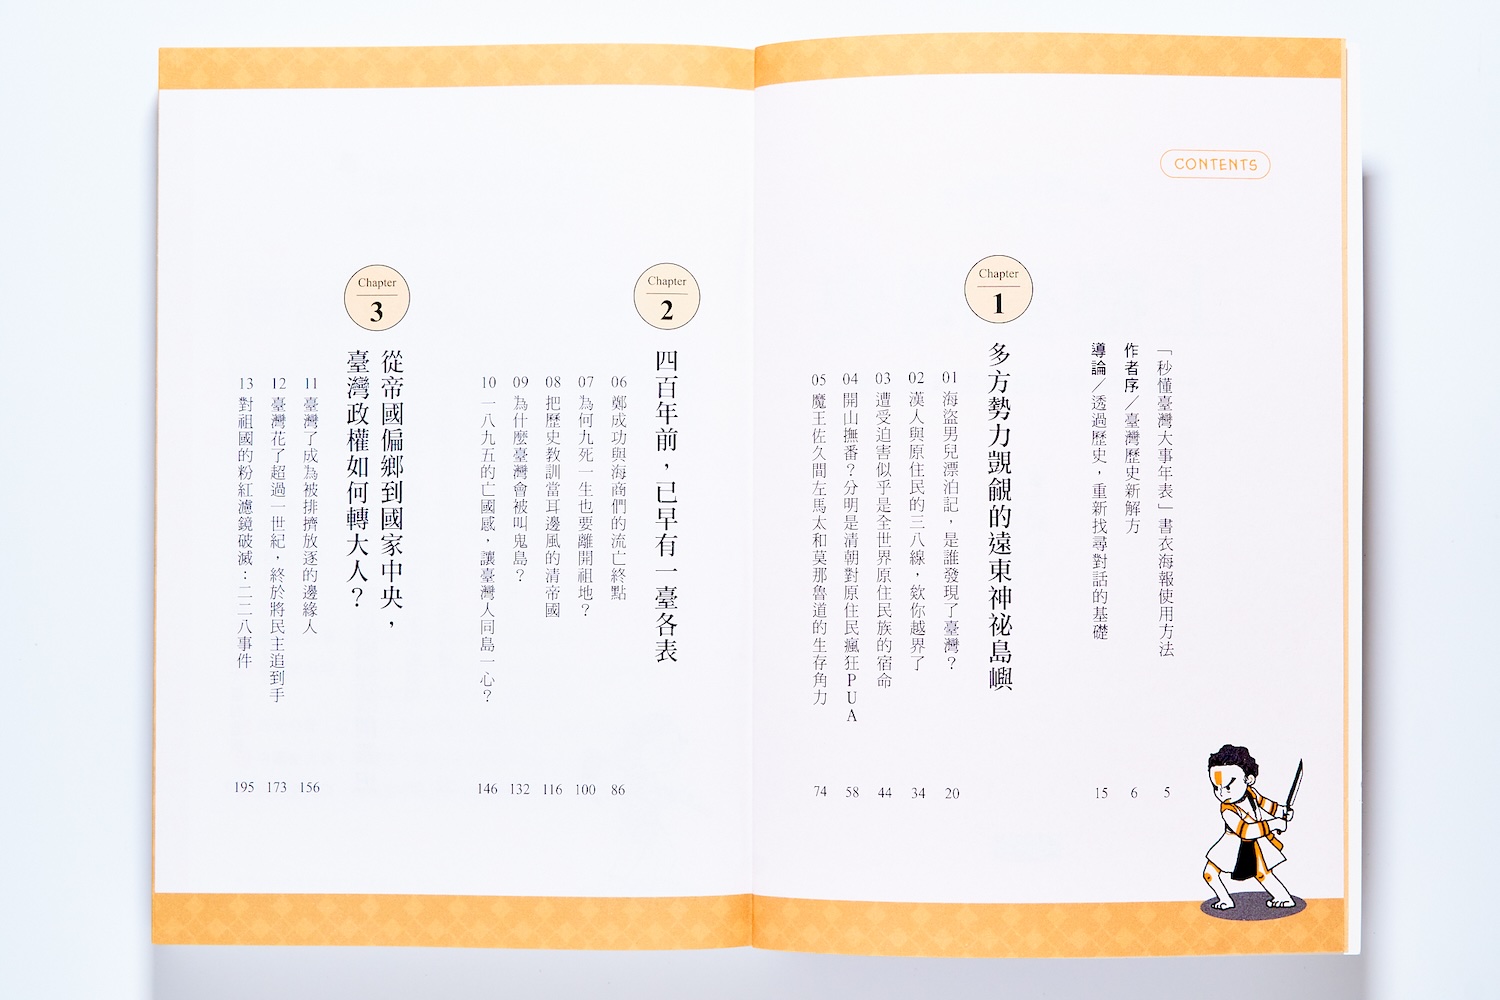 CONTENTS
「秒懂臺灣大事年表」書衣海報使用方法 5
作者序／臺灣歷史新解方 6
導論／透過歷史，重新找尋對話的基礎 15
Chapter
1
多方勢力覬覦的遠東神祕島嶼
01 海盜男兒漂泊記，是誰發現了臺灣？ 20
02 漢人與原住民的三八線，欸你越界了 34
03 遭受迫害似乎是全世界原住民族的宿命 44
04 開山撫番？分明是清朝對原住民瘋狂PUA 58
05 魔王佐久間左馬太和莫那魯道的生存角力 74
Chapter
2
四百年前，已早有一臺各表
06 鄭成功與海商們的流亡終點 86
07 為何九死一生也要離開祖地？ 100
08 把歷史教訓當耳邊風的清帝國 116
09 為什麼臺灣會被叫鬼島？ 132
10 一八九五的亡國感，讓臺灣人同島一心？ 146
Chapter
3
從帝國偏鄉到國家中央，
臺灣政權如何轉大人？
11 臺灣了成為被排擠放逐的邊緣人 156
12 臺灣花了超過一世紀，終於將民主追到手 173
13 對祖國的粉紅濾鏡破滅：二二八事件 195